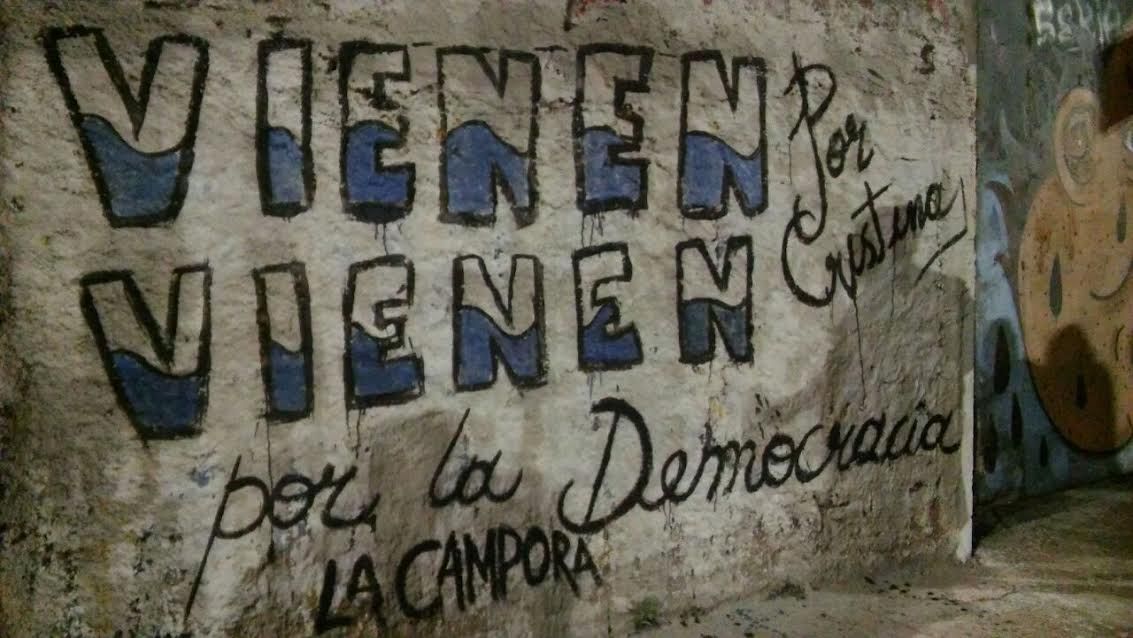 VIENEN Por Cristina
VIENEN
por la Democracia
LA CAMPORA